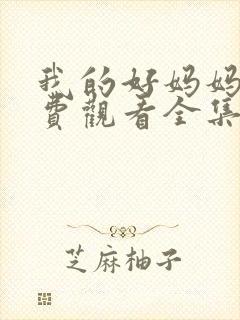 我的好妈妈
費觀看全集
芝麻柚子